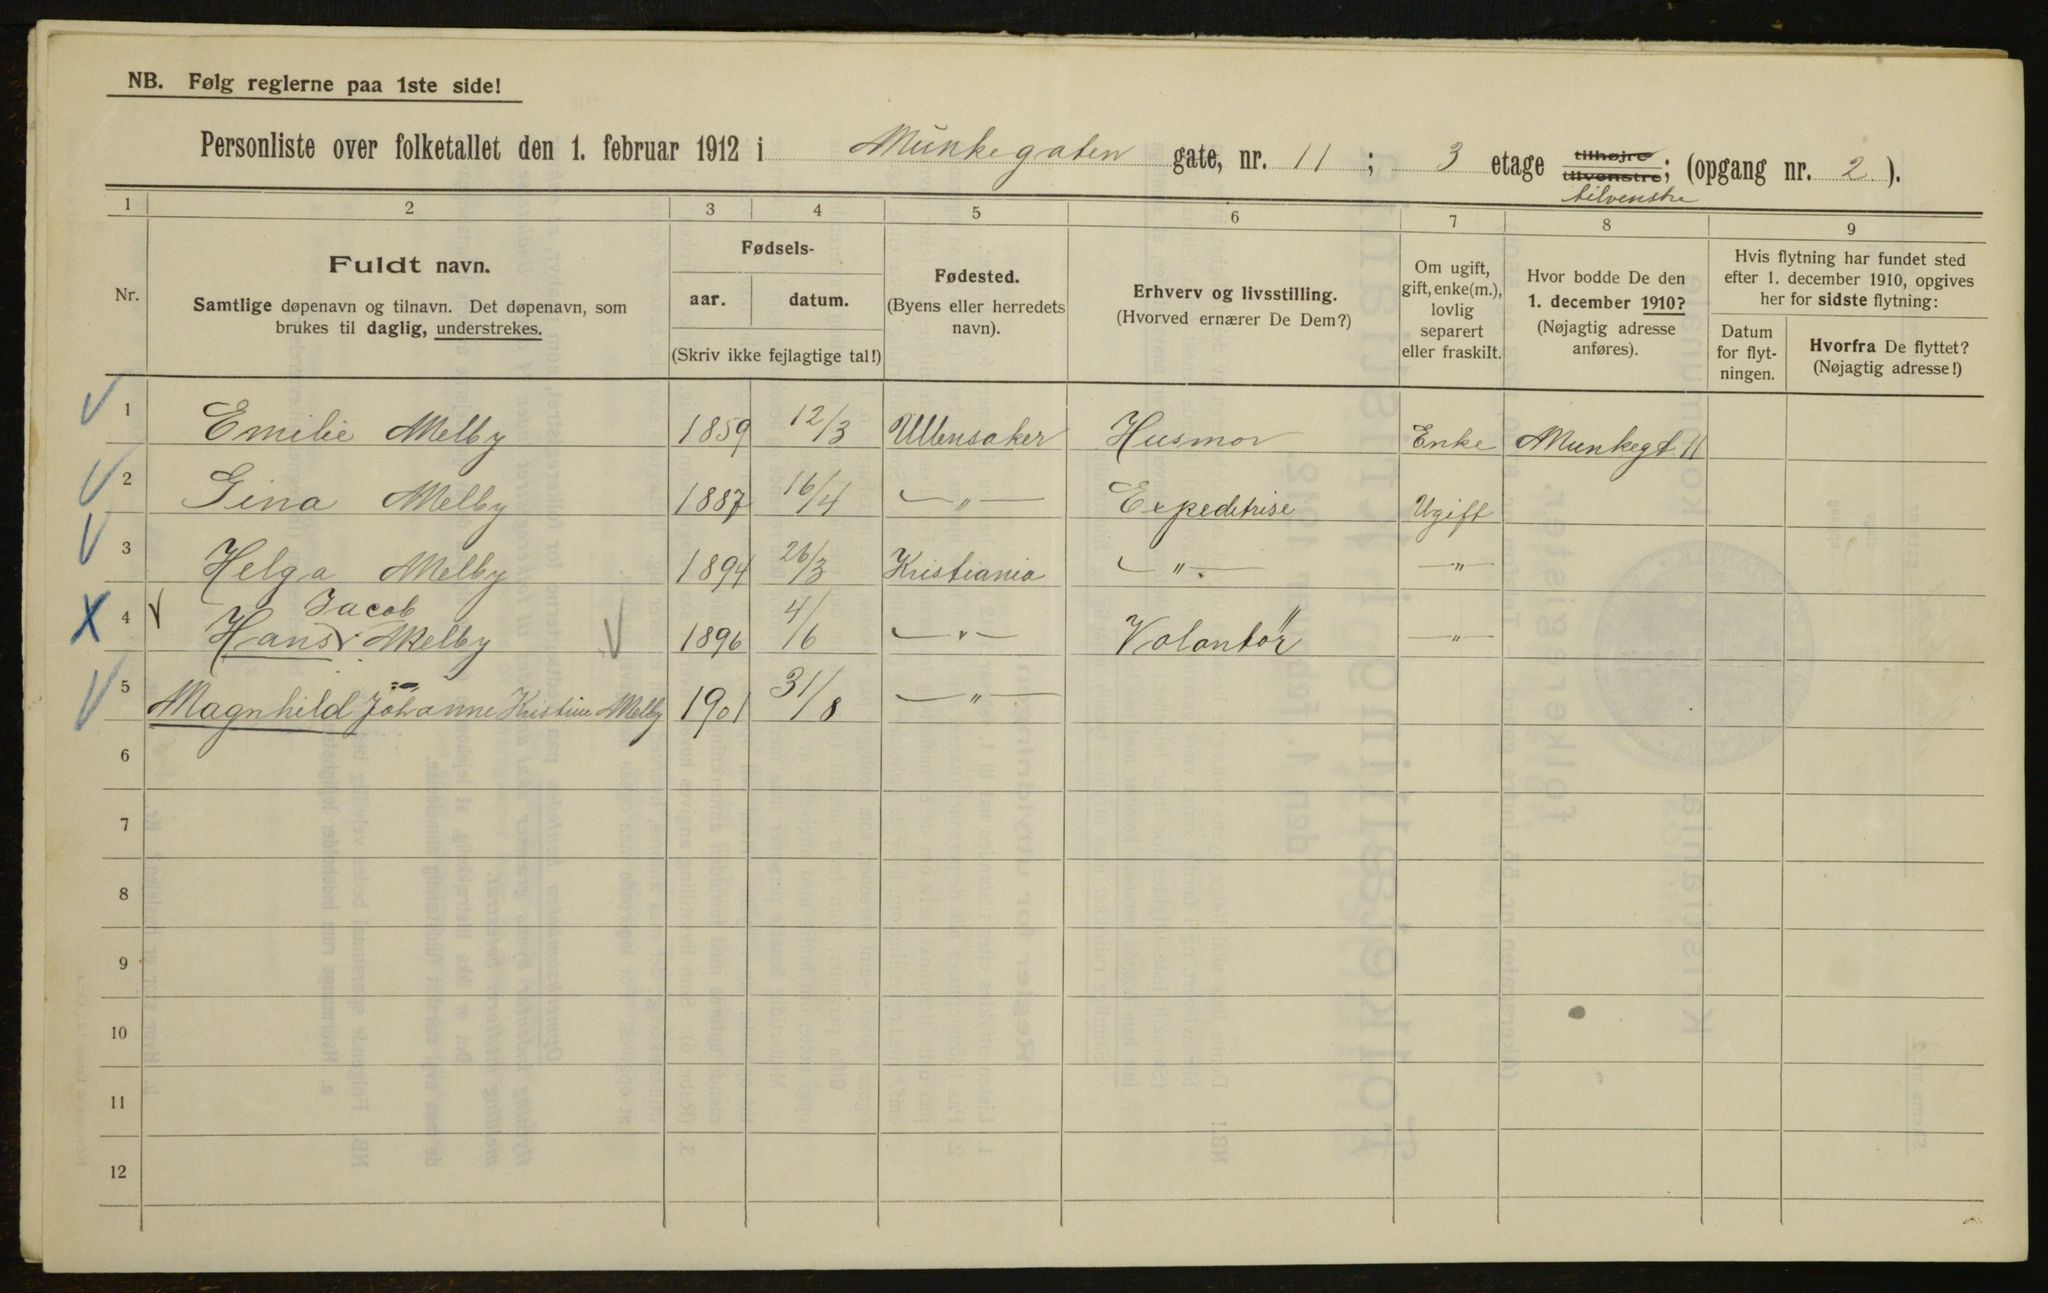 NB. Følg reglerne paa 1ste side!
Personliste over folketallet den 1. februar 1912 i Munkegaten gate, nr. 11 ; 3 etage tilhøjre tilvenstre; (opgang nr. 2 ).
tilvenstre
1 2 3 4 5 6 7 8 9
Nr.
Fuldt navn.
Samtlige døpenavn og tilnavn. Det døpenavn, som
brukes til daglig, understrekes.
Fødsels-
aar. datum.
(Skriv ikke fejlagtige tal!)
Fødested.
(Byens eller herredets
navn).
Erhverv og livsstilling.
(Hvorved ernærer De Dem?)
Om ugift,
gift, enke(m.),
lovlig
separert
eller fraskilt.
Hvor bodde De den
1. december 1910?
(Nøjagtig adresse
anføres).
Hvis flytning har fundet sted
efter 1. december 1910, opgives
her for sidste flytning:
Datum
for flyt-
ningen.
Hvorfra De flyttet?
(Nøjagtig adresse!)
1 Emilie Melby 1859 12/3 Ullensaker Husmor Enke Munkegt. 11
2 Gina Melby 1887 16/4 — " — Expeditrise Ugift
3 Helga Melby 1894 26/3 Kristiania — " — — " —
Jacob
4 Hans Melby 1896 4/6 — " — Volontør — " —
5 Magnhild Johanne Kristine Melby 1901 31/8 — " —
6
7
8
9
10
11
12